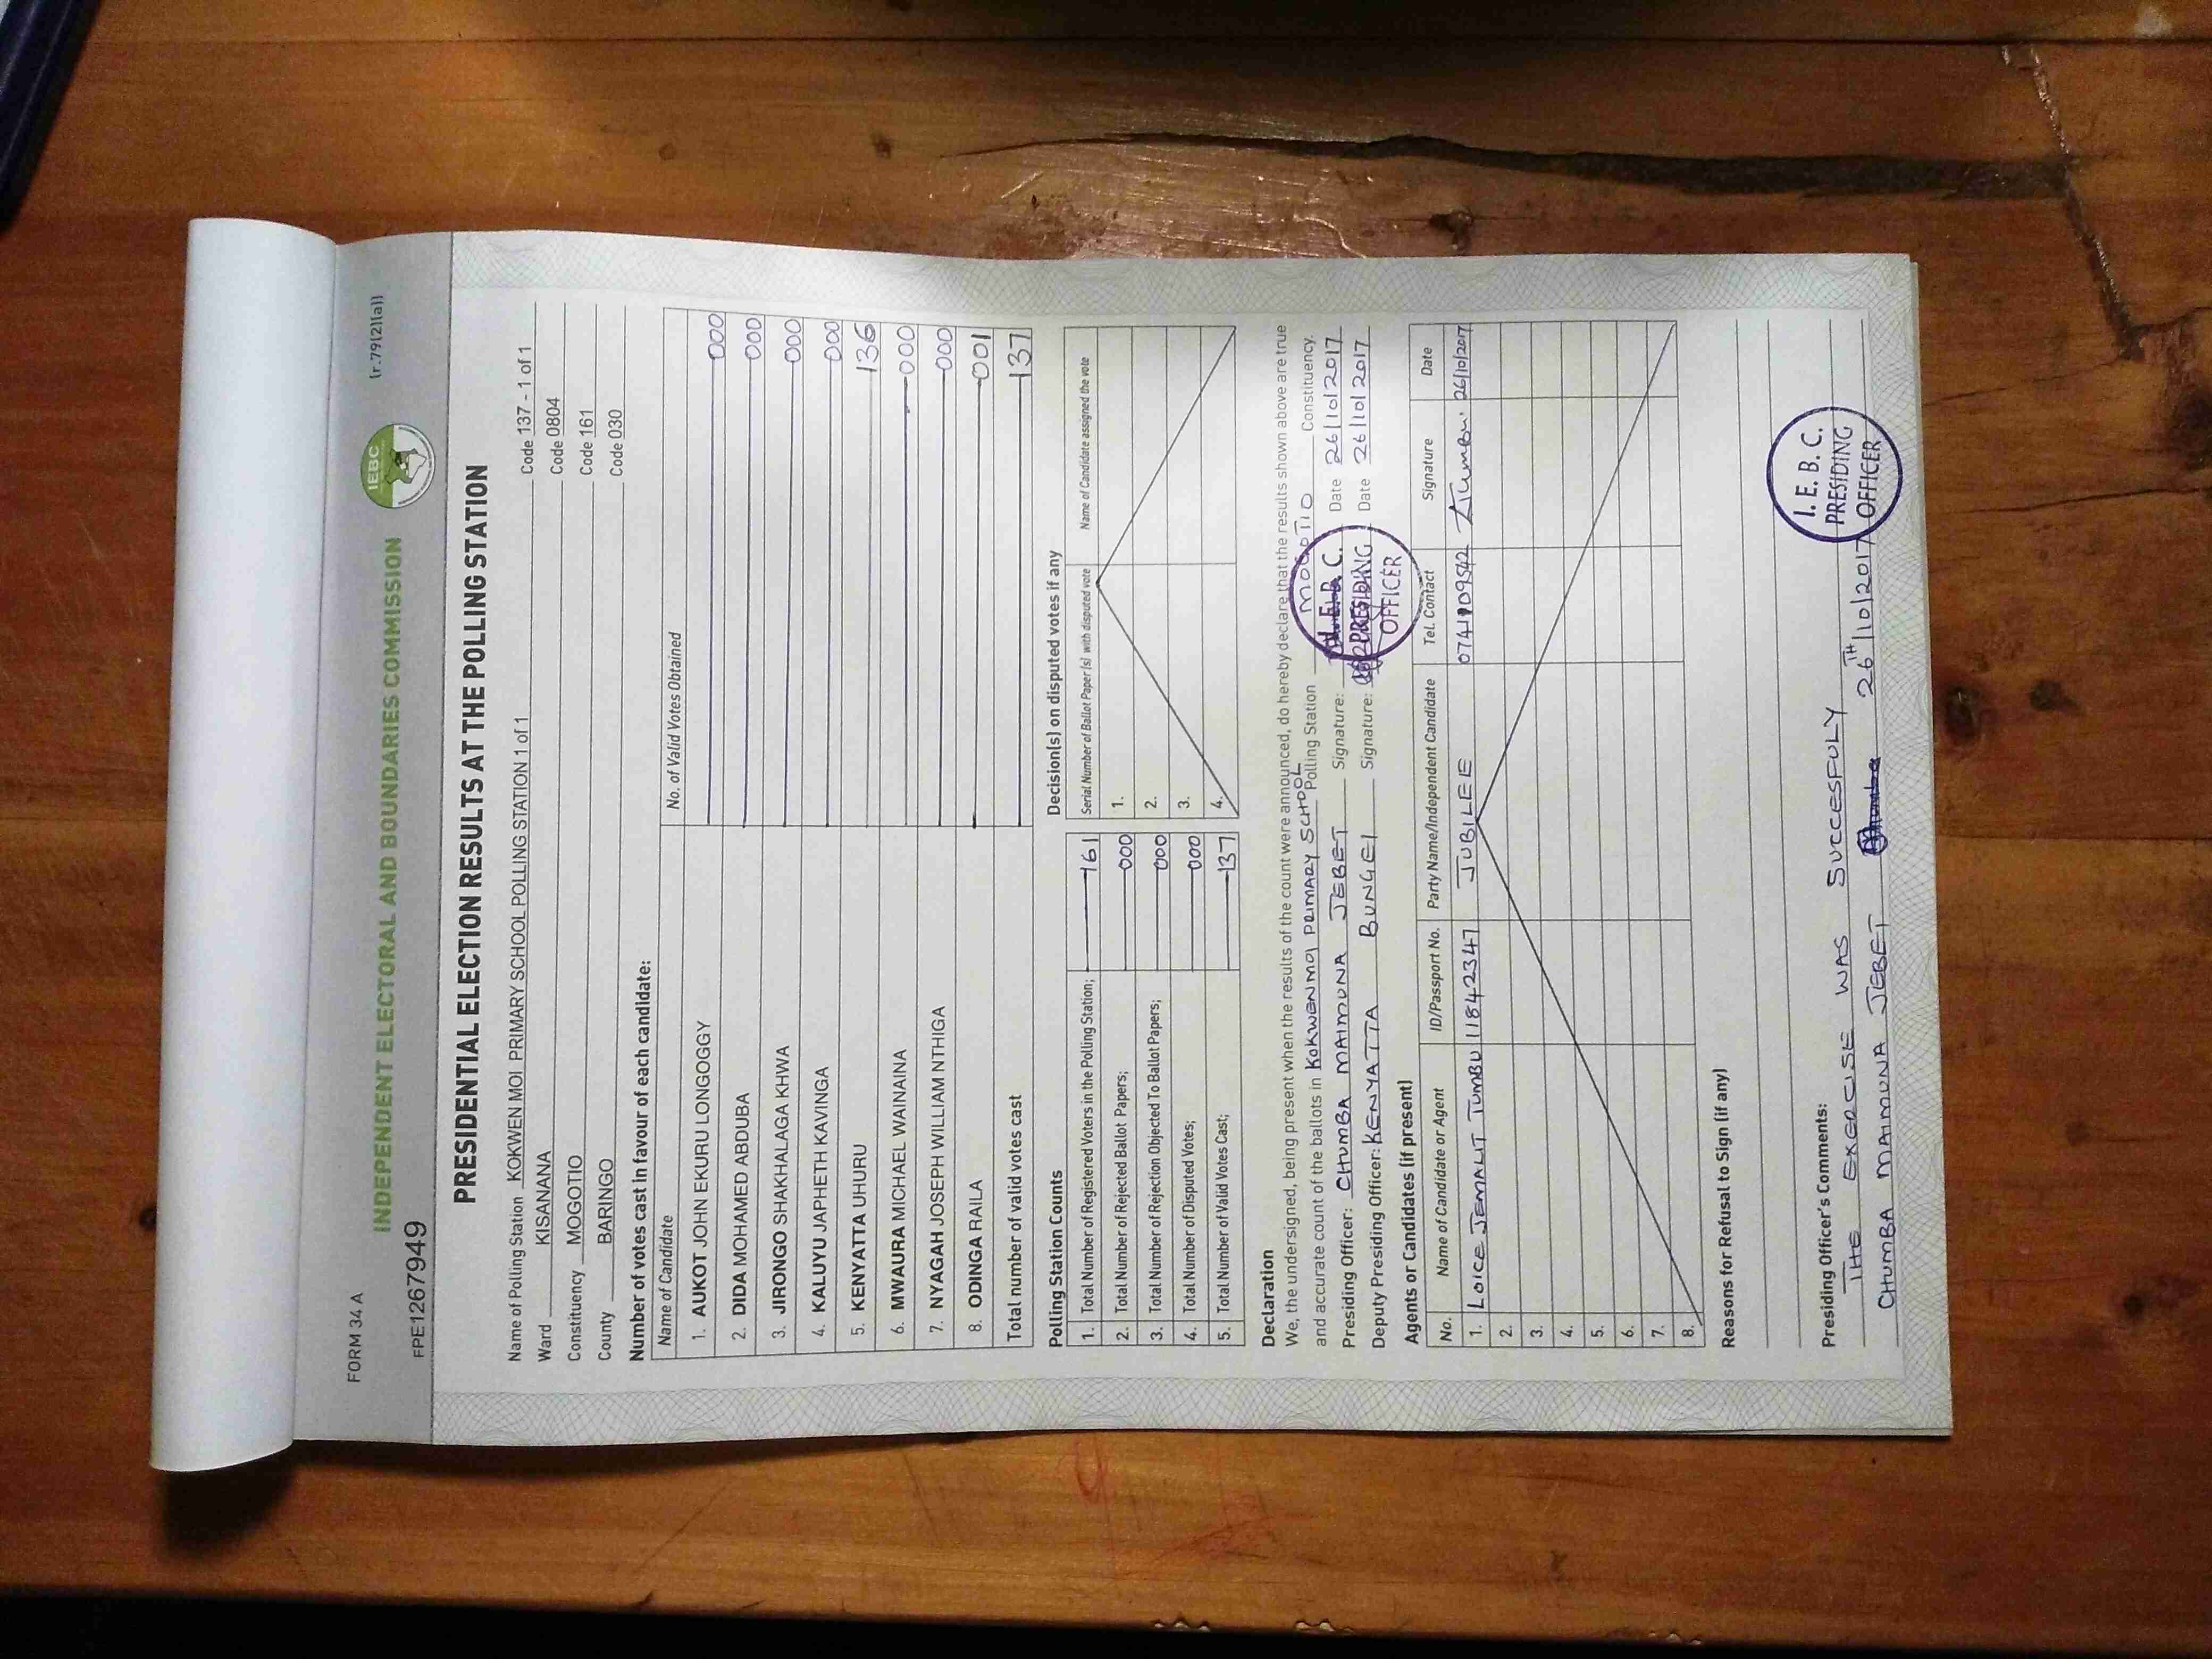 FORM 34 A
(r.79(2)(a))
IEBC
INDEPENDENT ELECTORAL AND BOUNDARIES COMMISSION
FPE1267949
PRESIDENTIAL ELECTION RESULTS AT THE POLLING STATION
Name of Polling Station KOKWEN MOI PRIMARY SCHOOL POLLING STATION 1 of 1 Code 137 - 1 of 1
Ward KISANANA Code 0804
Constituency MOGOTIO Code 161
County BARINGO Code 030
Number of votes cast in favour of each candidate:
Name of Candidate No. of Valid Votes Obtained
1. AUKOT JOHN EKURU LONGOGGY 000
2. DIDA MOHAMED ABDUBA 000
3. JIRONGO SHAKHALAGA KHWA 000
4. KALUYU JAPHETH KAVINGA 000
5. KENYATTA UHURU 136
6. MWAURA MICHAEL WAINAINA 000
7. NYAGAH JOSEPH WILLIAM NTHIGA 000
8. ODINGA RAILA 001
Total number of valid votes cast 137
Polling Station Counts
1. Total Number of Registered Voters in the Polling Station; 161
2. Total Number of Rejected Ballot Papers; 000
3. Total Number of Rejection Objected To Ballot Papers; 000
4. Total Number of Disputed Votes; 000
5. Total Number of Valid Votes Cast; 137
Decision(s) on disputed votes if any
Serial Number of Ballot Paper (s) with disputed vote Name of Candidate assigned the vote
1.
2.
3.
4.
Declaration
We, the undersigned, being present when the results of the count were announced, do hereby declare that the results shown above are true
and accurate count of the ballots in KOKWENMOI PRIMARY SCHOOL Polling Station MOGOTIO Constituency.
Presiding Officer: CHUMBA MAIMUNA JEBET Signature: Date 26/10/2017
Deputy Presiding Officer: KENYATTA BUNGEI Signature: Date 26/10/2017
I. E. B. C.
PRESIDING
OFFICER
Agents or Candidates (if present)
No. Name of Candidate or Agent ID/Passport No. Party Name/Independent Candidate Tel. Contact Signature Date
1. LOICE JEMALIT TUMBU 11842347 JUBILEE 0741109542 26/10/2017
2.
3.
4.
5.
6.
7.
8.
Reasons for Refusal to Sign (if any)
Presiding Officer's Comments:
THE EXERCISE WAS SUCCESFULY
CHUMBA MAIMUNA JEBET 26TH/10/2017
I. E. B. C.
PRESIDING
OFFICER